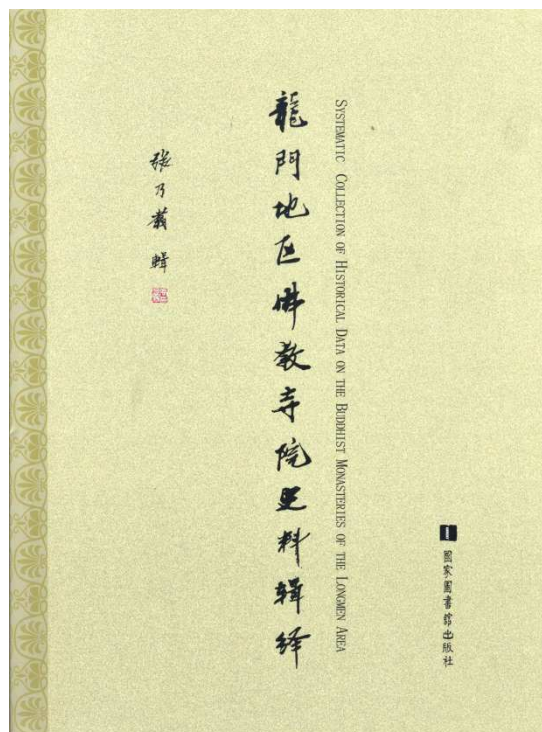 SYSTEMATIC COLLECTION OF HISTORICAL DATA ON THE BUDDHIST MONASTERIES OF THE LONGMEN AREA
龍門地区佛教寺院史料輯绎
張乃翥 輯
國家圖書館出版社